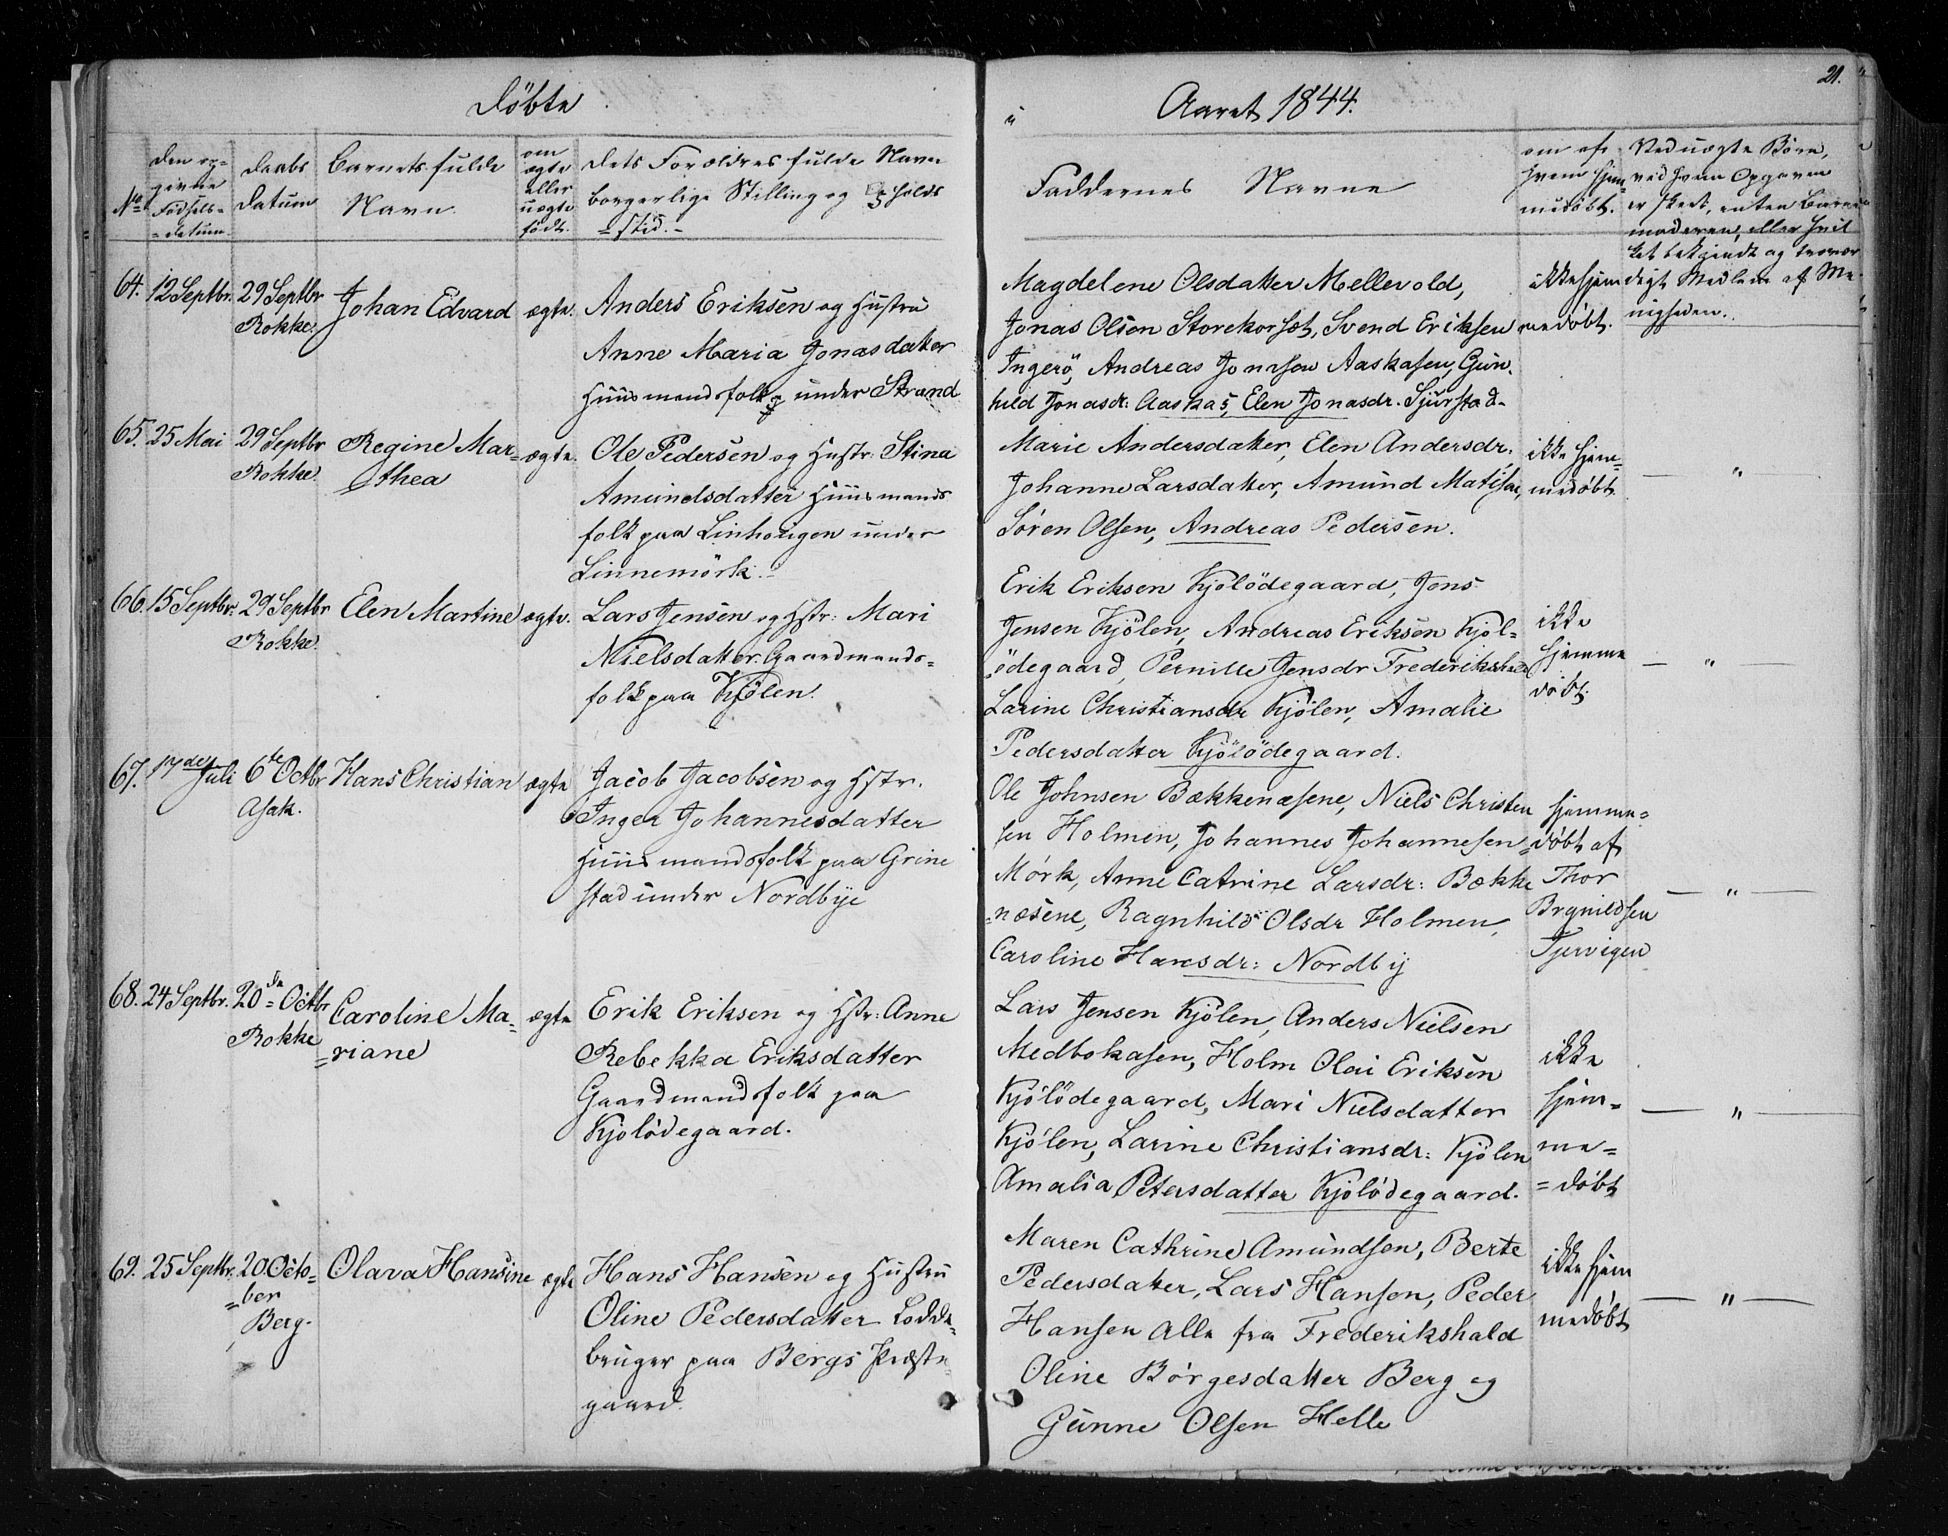 Döbte
i
Aaret 1844.
21.
No
Den op-
givne
Fødsels-
=datum.
Daabs
Datum
Barnets fulde
Navn.
om
ægte
eller
uægte
født.
Dets Forældres fulde Navn
borgerlige Stilling og Opholds
=stid.-
Faddernes Navne
om af
hvem hjem-
medøbt.
Ved uægte Börn,
ved hvem Opgaven
er skeet, enten Barne
moderen, eller hvil
ket bekjendt og trovær
digt Medlem af Me-
nigheden.
64. 12 Septbr. 29 Septbr
Rokke.
Johan Edvard
ægte.
Anders Eriksen og Hustru
Anne Maria Jonasdatter
Huusmandsfolk under Strand
Magdelene Olsdatter Mellevold,
Jonas Olsen Storekorset, Svend Eriksen
Ingerö, Andreas Jonasen Aaskasen, Gun-
hild Jonasdr: Aaskas, Elen Jonasdr. Sjurstad-
ikke hjem
medøbt.
65. 25 Mai 29 Septbr
Rokke.
Regine Mar=
thea
ægte.
Ole Pedersen og Hustr: Stina
Amundsdatter Huusmands
folk paa Linhougen under
Linnemörk.
Marie Andersdatter, Elen Andersdr.
Johanne Larsdatter, Amund Matisen,
Sören Olsen, Andreas Pedersen.
ikke hjem=
medøbt.
— " —
66. 15 Septbr. 29 Septbr
Rokke.
Elen Martine
ægte.
Lars Jensen og Hstr: Mari
Nielsdatter Gaardmands=
folk paa Kjölen.
Erik Eriksen Kjölödegaard, Jens
Jensen Kjölen, Andreas Eriksen Kjöl=
ödegaard, Pernille Jensdr Frederikshald
Larine Christiansdr Kjölen, Amalie
Pedersdatter Kjölödegaard.
ikke
hjemme
döbt.
— " —
67. Juli 6te Octbr
Asak.
Hans Christian
ægte
Jacob Jacobsen og Hstr.
Inger Johannesdatter
Huusmandsfolk paa Grine
stad under Nordbye
Ole Johnsen Bækkenæsene, Niels Christen
sen Holmen, Johannes Johannesen
Mörk, Anne Catrine Larsdr: Bække
=næsene, Ragnhild Olsdr Holmen,
Caroline Hansdr: Nordby
hjemme=
=døbt af
Thor
Brynildsen
Tjervigen
— " —
68. 24 Septbr. 20de Octbr
Rokke
Caroline Ma=
=riane
ægte
Erik Eriksen og Hstr: Anne
Rebekka Eriksdatter
Gaardmandsfolk paa
Kjölödegaard.
Lars Jensen Kjölen, Anders Nielsen
Medbokasen, Holm Olai Eriksen
Kjölödegaard, Mari Nielsdatter
Kjölen, Larine Christiansdr: Kjölen
Amalia Petersdatter Kjölödegaard.
ikke
hjem=
me=
=døbt
— " —
69. 25 Septbr. 20 Octo=
=ber
Berg.
Olava Hansine
ægte
Hans Hansen og Hustru
Oline Pedersdatter Lodds-
bruger paa Bergs Præste-
gaard.
Maren Cathrine Amundsen, Berte
Pedersdatter, Lars Hansen, Peder
Hansen alle fra Frederikshald
Oline Börgesdatter Berg og
Gunne Olsen Helle
ikke hjem
medøbt
— " —